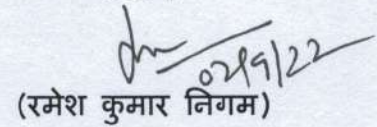 02/9/22
(रमेश कुमार निगम)